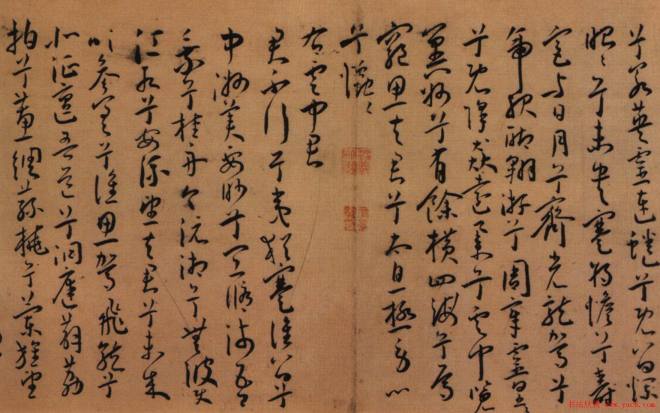 兮若英靈連蜷兮既留爛
昭〻兮未央蹇將憺兮壽
宮與日月兮齊光龍駕兮
帝服聊翱遊兮周章靈皇〻
兮既降猋遠舉兮雲中覽
冀州兮有餘橫四海兮焉
窮思夫君兮太息極勞心
兮
右雲中君
君不行兮夷猶蹇誰留兮
中洲美要眇兮宜脩沛吾
乘兮桂舟令沅湘兮無波使
江水兮安流望夫君兮未來
吹參差兮誰思駕飛龍兮
北征邅吾道兮洞庭薜荔
拍兮蕙綢蓀橈兮蘭旌望